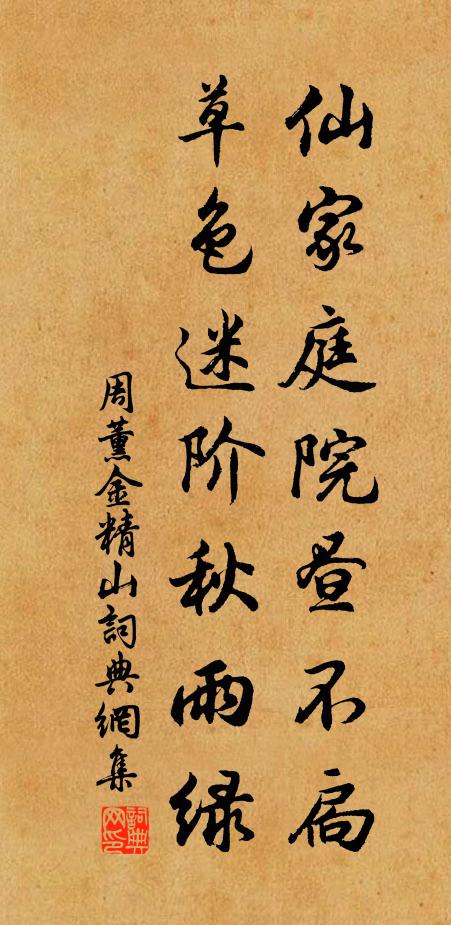 仙家庭院昼不扃
草色迷阶秋雨绿
周薰金精山詞典網集
詞典
网印